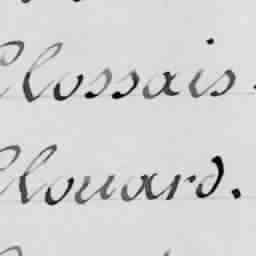 Clossais.
Clouard.